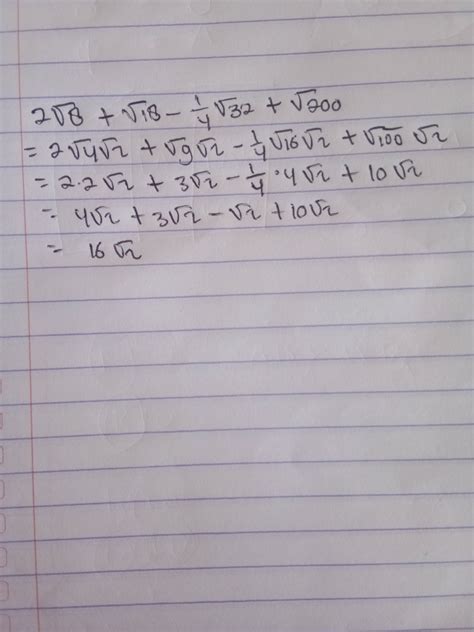 2√8 + √18 − 1/4 √32 + √200
= 2√4√2 + √9√2 − 1/4 √16√2 + √100 √2
= 2.2√2 + 3√2 − 1/4 · 4√2 + 10√2
= 4√2 + 3√2 − √2 + 10√2
= 16√2